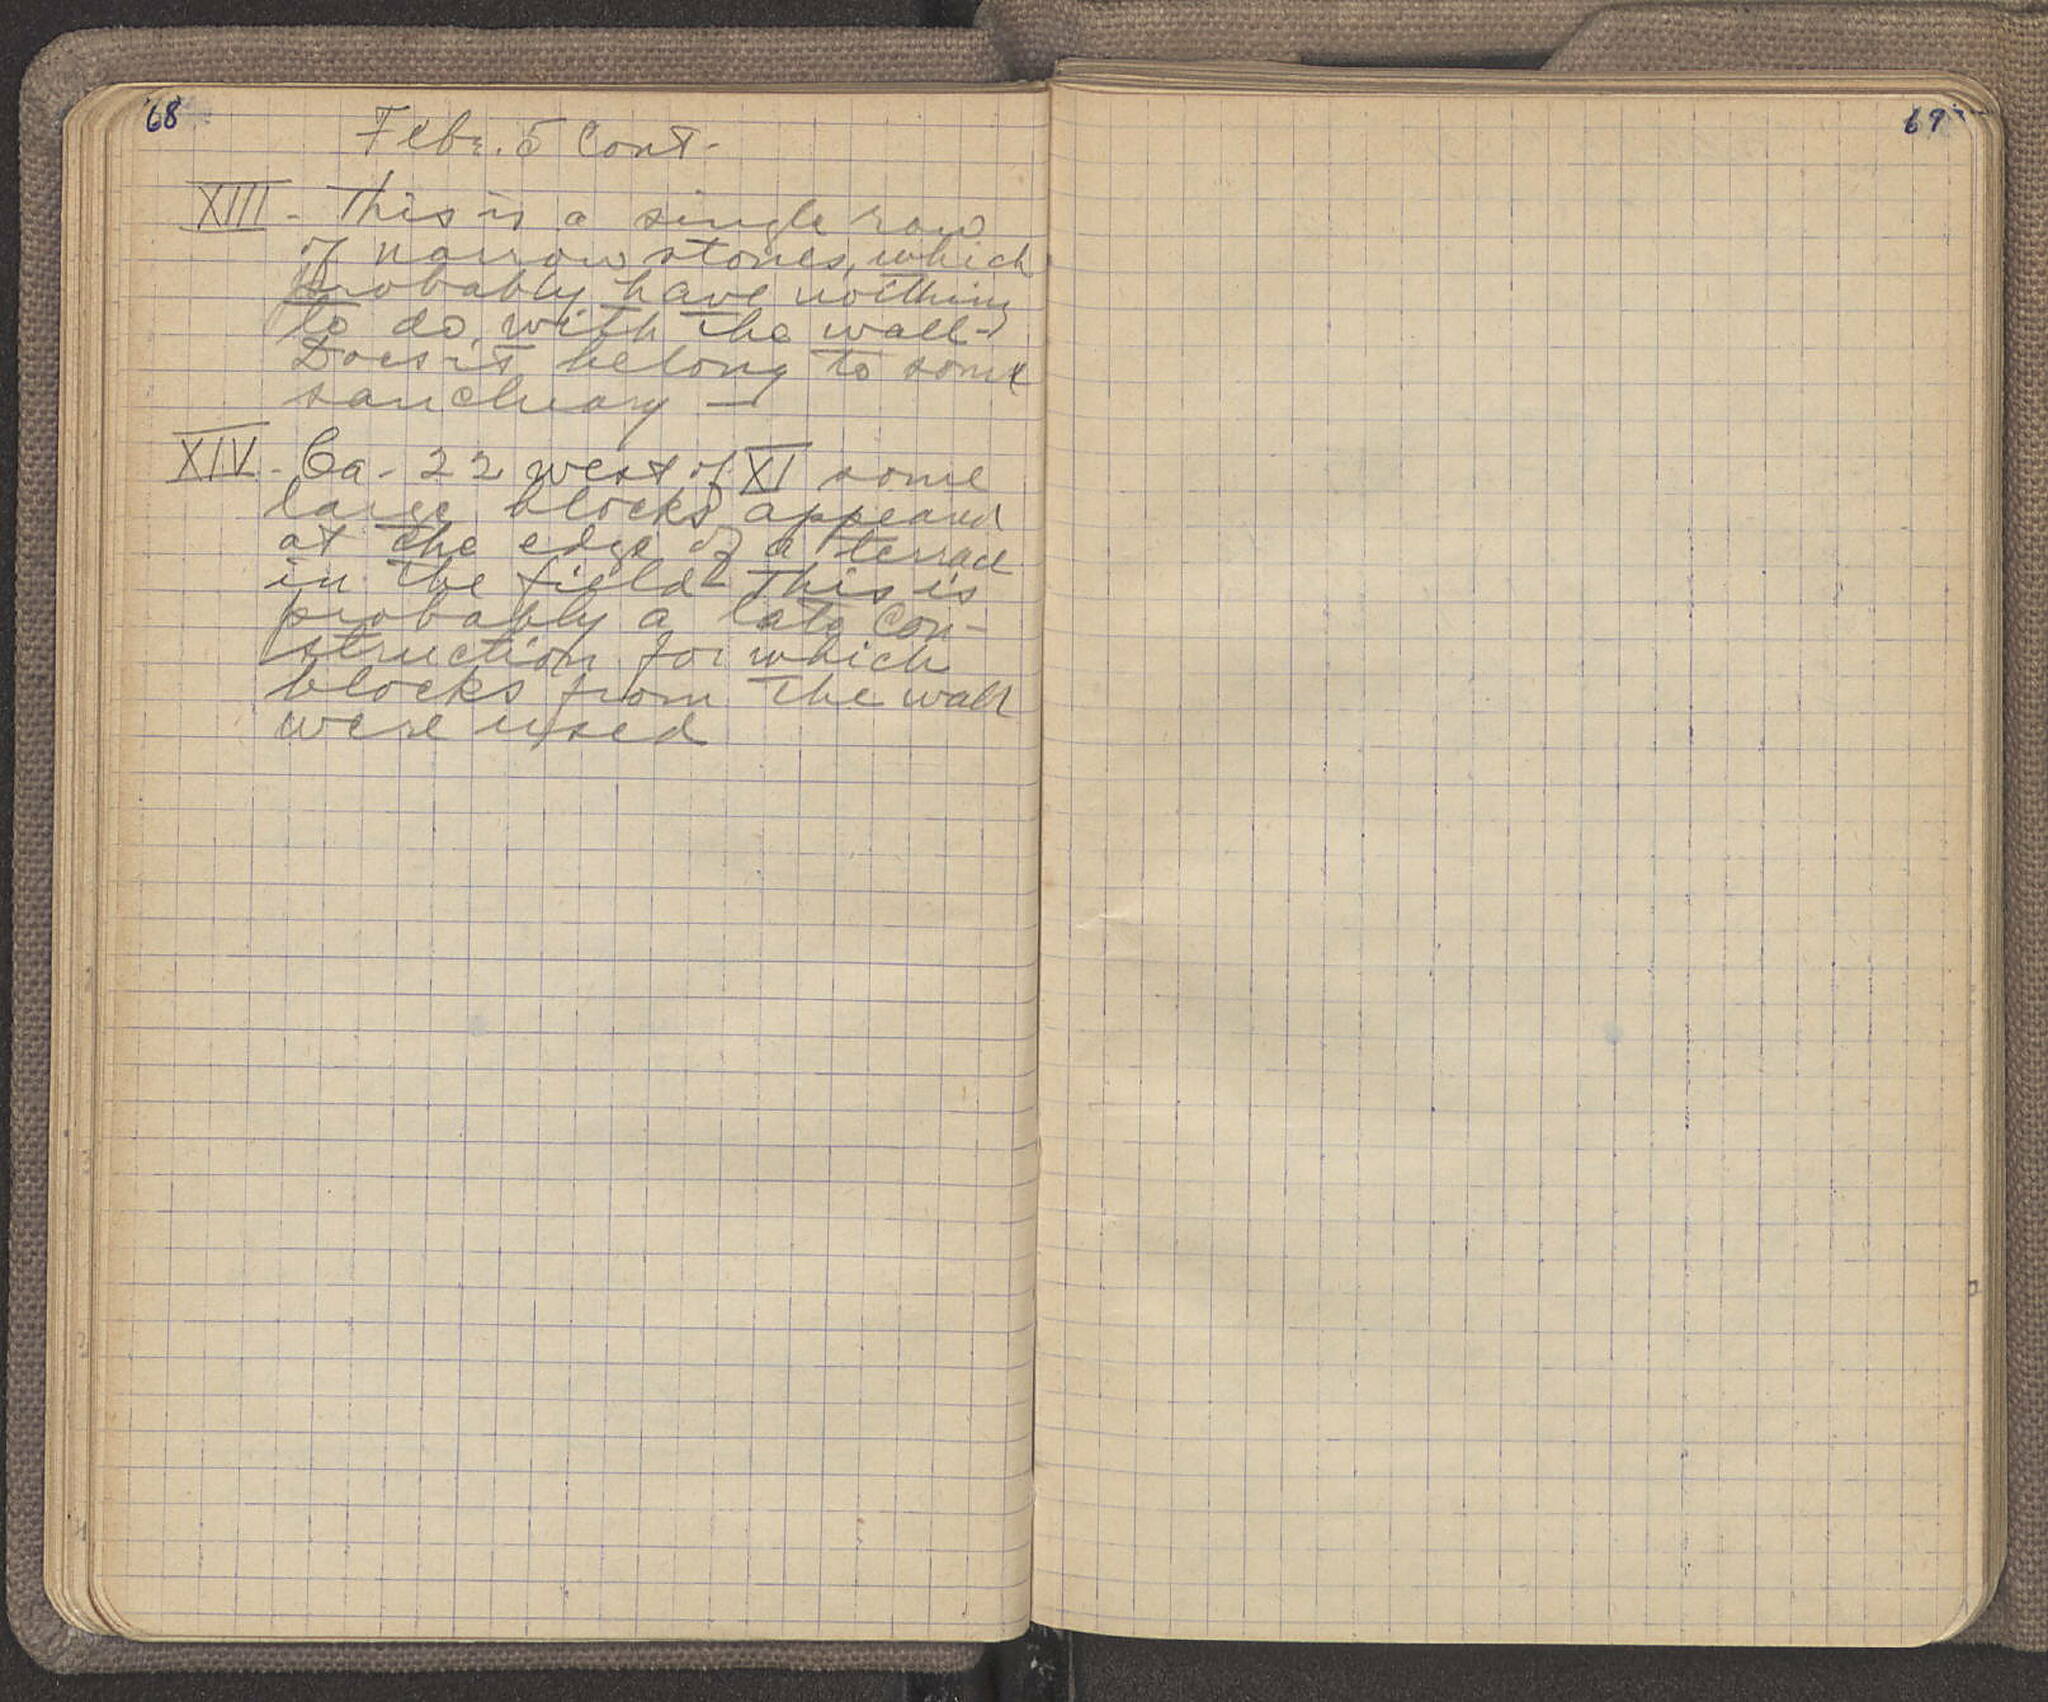 68
Febr. 5 Cont-
XIII - This is a single row
of narrow stones, which
probably have nothing
to do with the wall-
Does it belong to some
sanctuary -
XIV - Ca - 22 west of XI some
large blocks appeared
at the edge of a terrace
in the field This is
probably a late con-
struction for which
blocks from the wall
were used
69